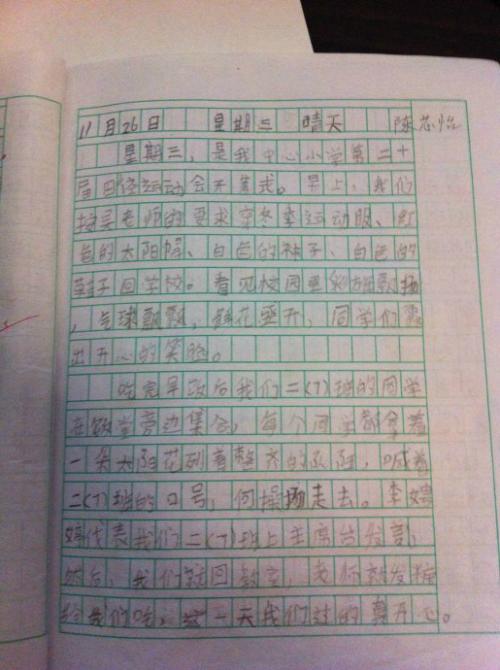 11月26日 星期三 晴天 陈芯怡
星期三，是我中心小学第二十
届田径运动会开幕式。早上，我们
按吴老师的要求穿冬季运动服、红
色的太阳帽、白色的袜子、白色的
鞋子回学校。看见校园里彩旗飘扬
，气球飘飘，鲜花盛开，同学们露
出开心的笑脸。
吃完早政后我们二(7)班的同学
在饭堂旁边集合，每个同学都拿着
一朵太阳花列着整齐的队阳，喊着
二(7)班的口号，向操场走去。李婧
婧代表我们二(7)班上主席台发言，
然后，我们就回教室，老师就发糖
给我们吃，这一天我们过的真开心。